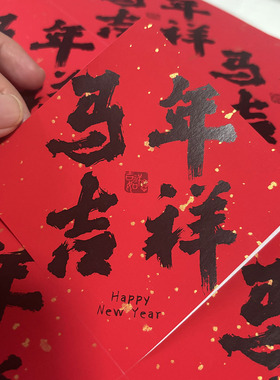 马年
吉祥
Happy
New Year